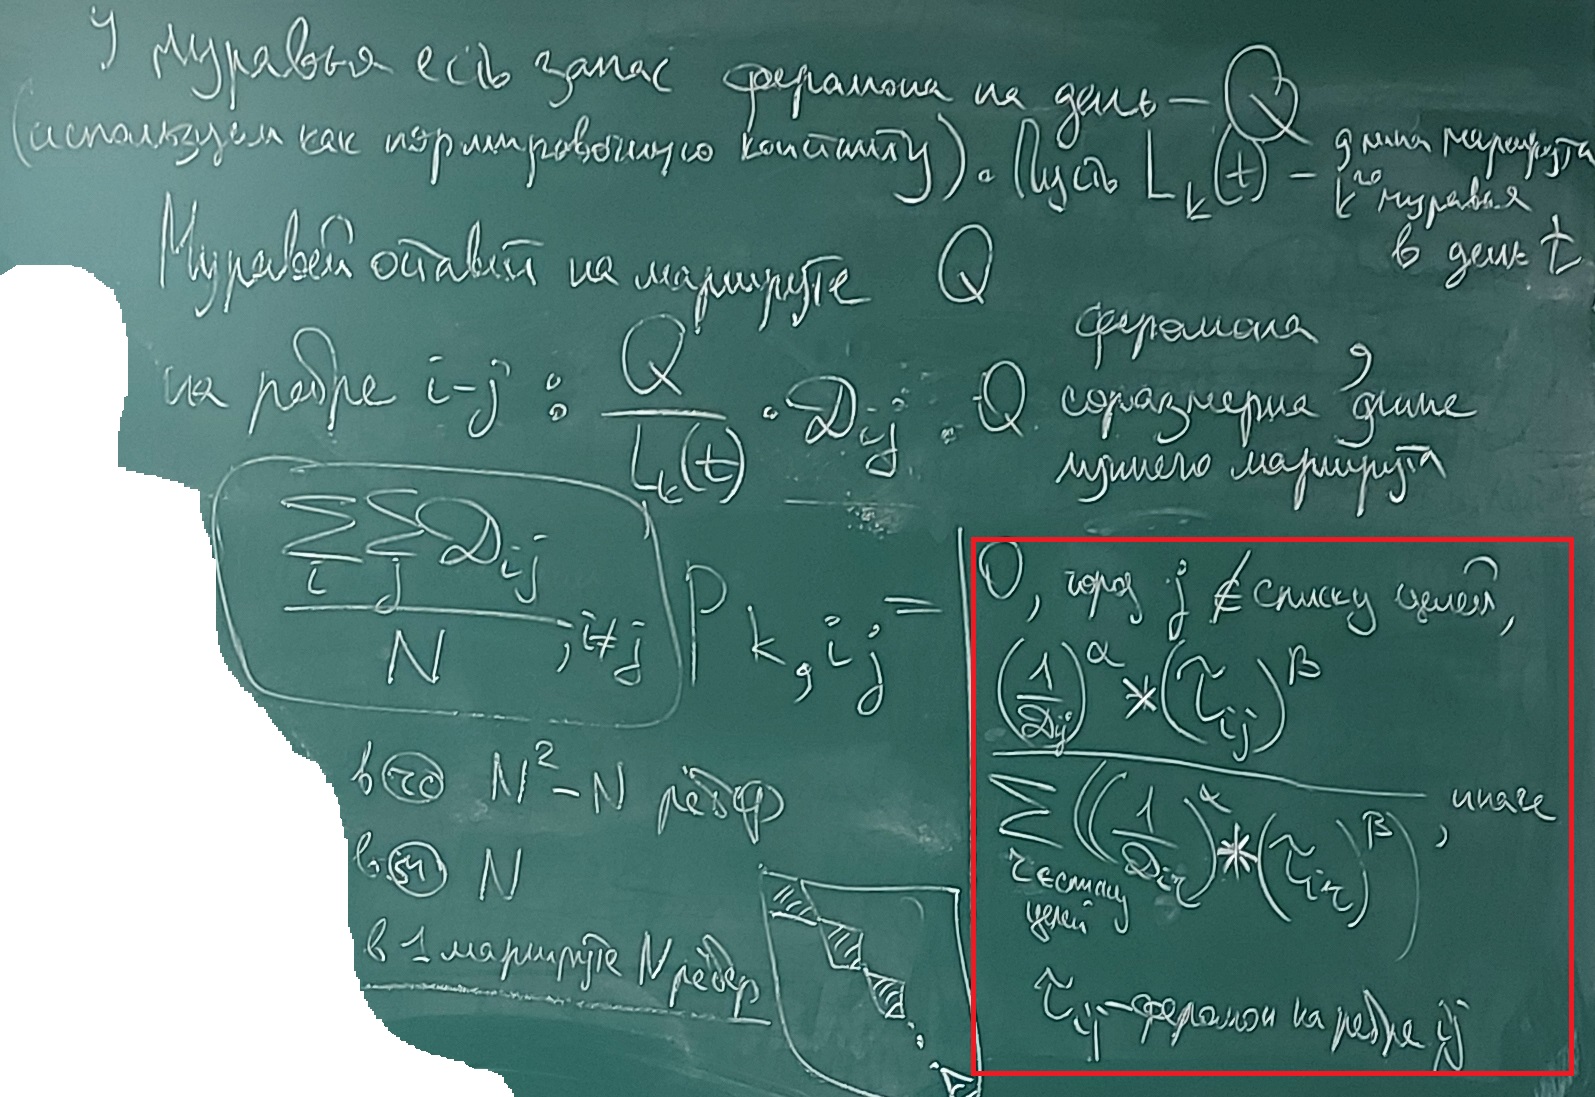 У муравья есть запас феромона на день – Q
(используем как нормировочную константу). Пусть L_k(t) – длина маршрута
k^го муравья
в день t
Муравей оставит на маршруте Q
феромона,
на ребре i-j : Q/L_k(t) · D_ij . Q соразмерна длине
лучшего маршрута
∑_i ∑_j D_ij / N , i≠j
P_k,ij =
0, город j ∉ списку целей,
(1/D_ij)^α * (τ_ij)^β / ∑_{r ∈ списку целей} ((1/D_ir)^α * (τ_ir)^β) , иначе
τ_ij – феромон на ребре ij
в N² – N рёбер
в N
в 1 маршруте N рёбер